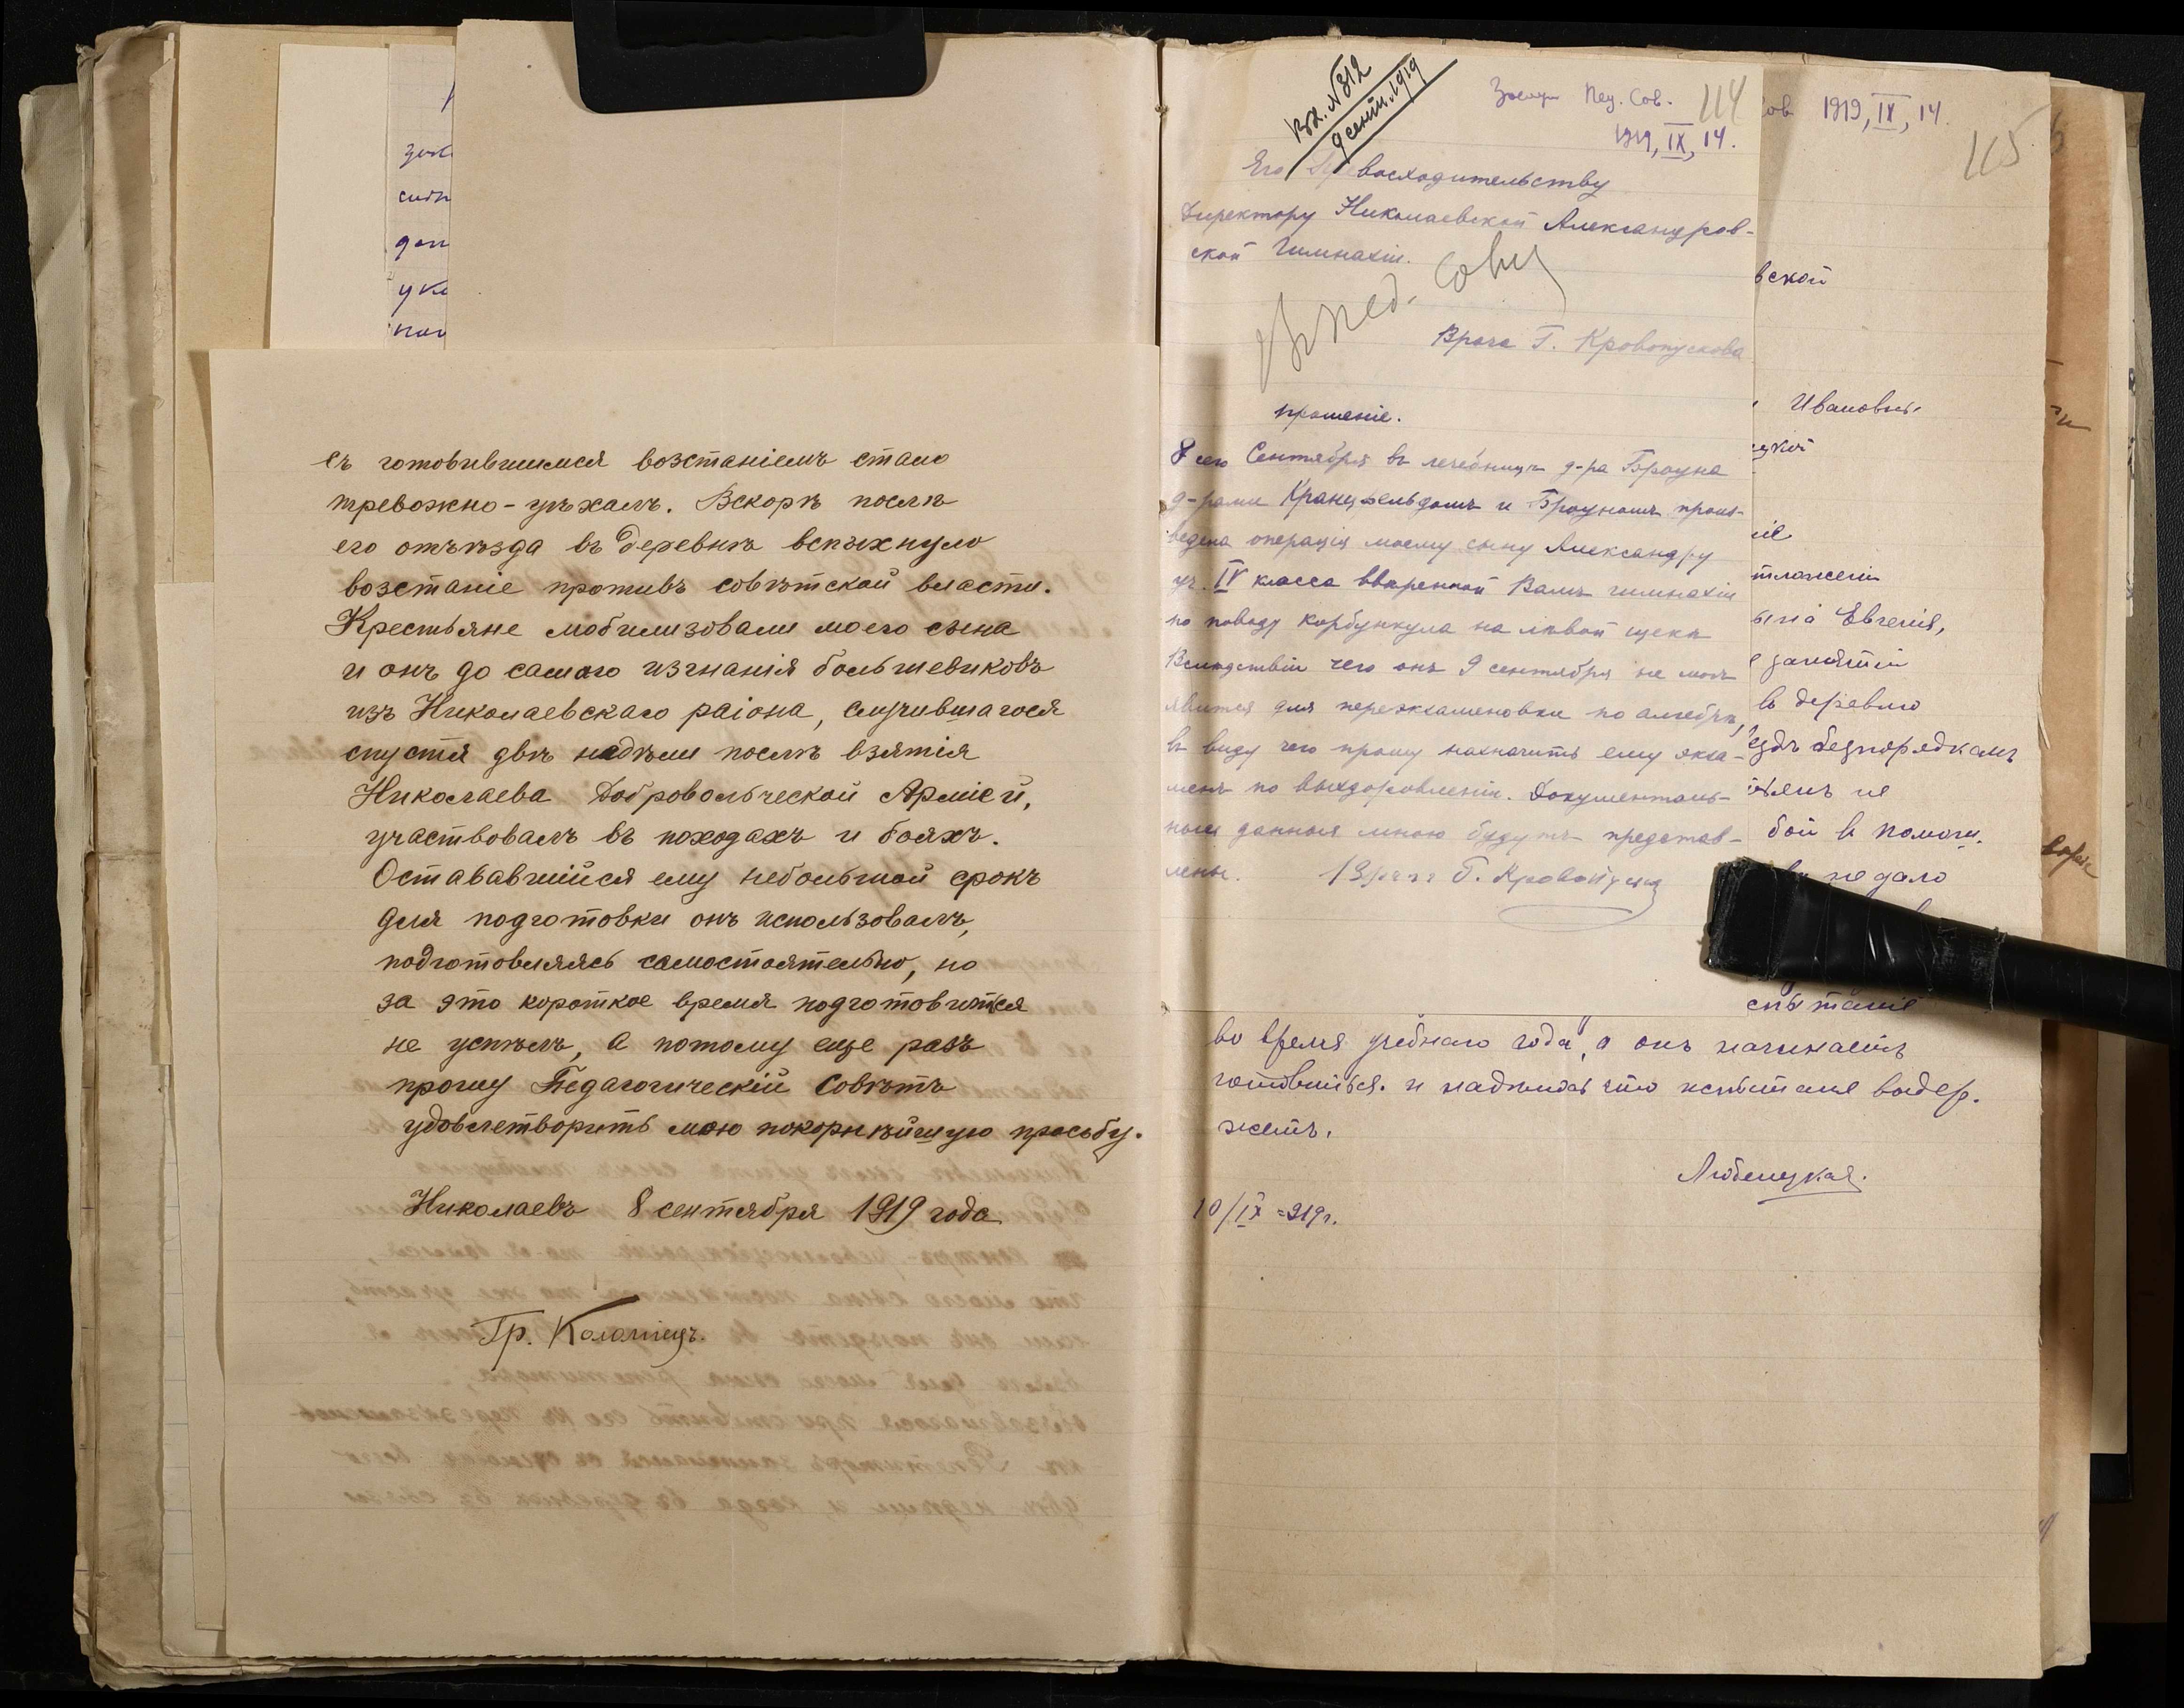 съ готовившимся возстаніемъ стало
тревожно - уѣхалъ. Вскорѣ послѣ
его отъѣзда въ деревнѣ вспыхнуло
возстаніе противъ совѣтской власти.
Крестьяне мобилизовали моего сына
и онъ до самаго изгнанія большевиковъ
изъ Николаевскаго раіона, случившагося
спустя двѣ недѣли послѣ взятія
Николаева Добровольческой Арміей,
участвовалъ въ походахъ и бояхъ.
Остававшійся ему небольшой срокъ
для подготовки онъ использовалъ,
подготовляясь самостоятельно, но
за это короткое время подготовиться
не успѣлъ, а потому еще разъ
прошу Педагогическій Совѣтъ
удовлетворить мою покорнѣйшую просьбу.
Николаевъ 8 сентября 1919 года
Гр. Коломіецъ.
зак
дол
ука
Вх. №312
9 сент. 1919
Пед. Сов. 114
1919, IX, 14.
Его Превосходительству
Директору Николаевской Александров-
ской Гимназіи.
Въ Пед. Совѣт
Врача Г. Кровопускова
прошеніе.
8 сего Сентября въ лечебницѣ д-ра Броуна
д-рами Кранцфельдомъ и Броуномъ произ-
ведена операція моему сыну Александру
уч. IV класса ввѣренной Вамъ гимназіи
по поводу карбункула на лѣвой щекѣ
Вслѣдствіи чего онъ 9 сентября не могъ
явится для переэкзаменовки по алгебрѣ,
въ виду чего прошу назначить ему экза-
менъ по выздоровленіи. Документаль-
ныя данныя мною будутъ представ-
лены. Врачъ Г. Кровопусков
ов 1919, IX, 14.
115
вской
Ивановны
цкой
ніе
сына Евгенія,
занятій
въ деревню
безпорядкамъ
не
бой и помощи.
не дало
спытаніе
во время учебнаго года, а онъ начинаетъ
готовиться. и надѣюсь что испытанія выдер-
житъ.
Любецкая.
10/IX =919г.